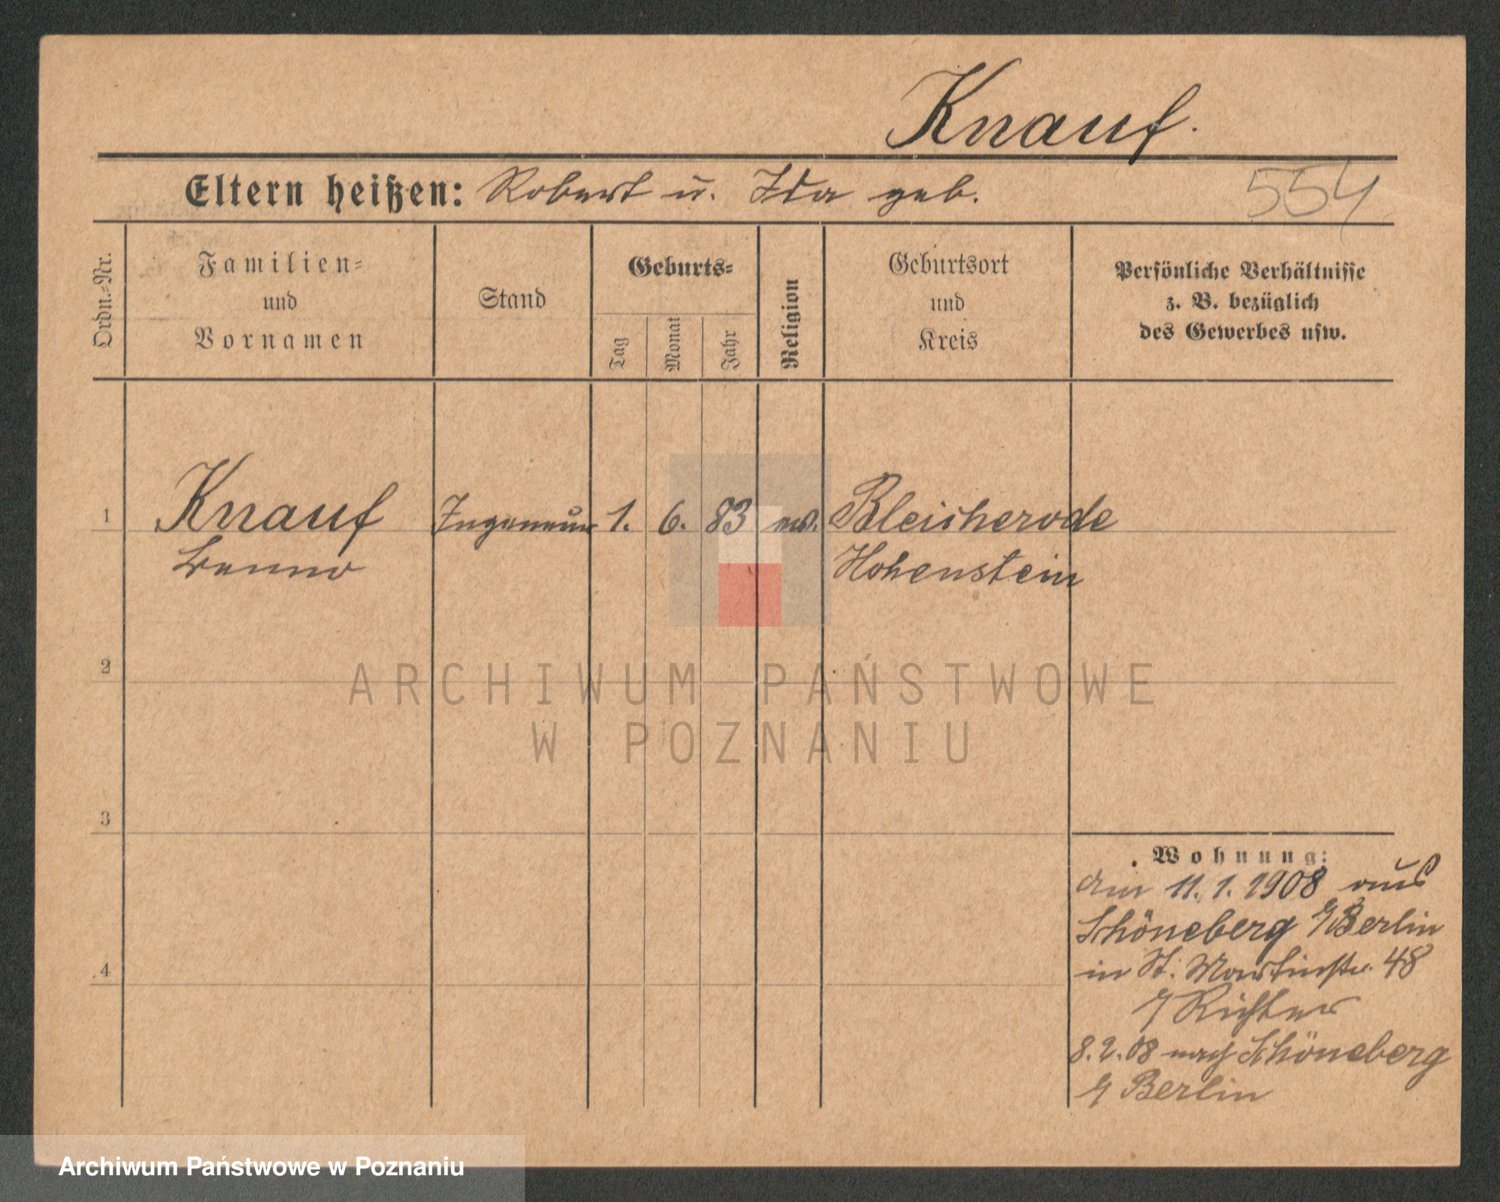 Knauf.
Eltern heißen: Robert u. Ida geb.
554
Ordn.-Nr.
Familien-
und
Vornamen
Stand
Geburts-
Tag
Monat
Jahr
Religion
Geburtsort
und
Kreis
Persönliche Verhältnisse
z. B. bezüglich
des Gewerbes usw.
1 Knauf Ingenieur 1. 6. 83 ev. Bleicherode
Benno Hohenstein
2
ARCHIWUM PAŃSTWOWE
W POZNANIU
3
Wohnung:
am 11.1.1908 aus
Schöneberg b/Berlin
4 in St. Martinstr. 48
b/ Richter
8.2.08 nach Schöneberg
b/ Berlin
Archiwum Państwowe w Poznaniu